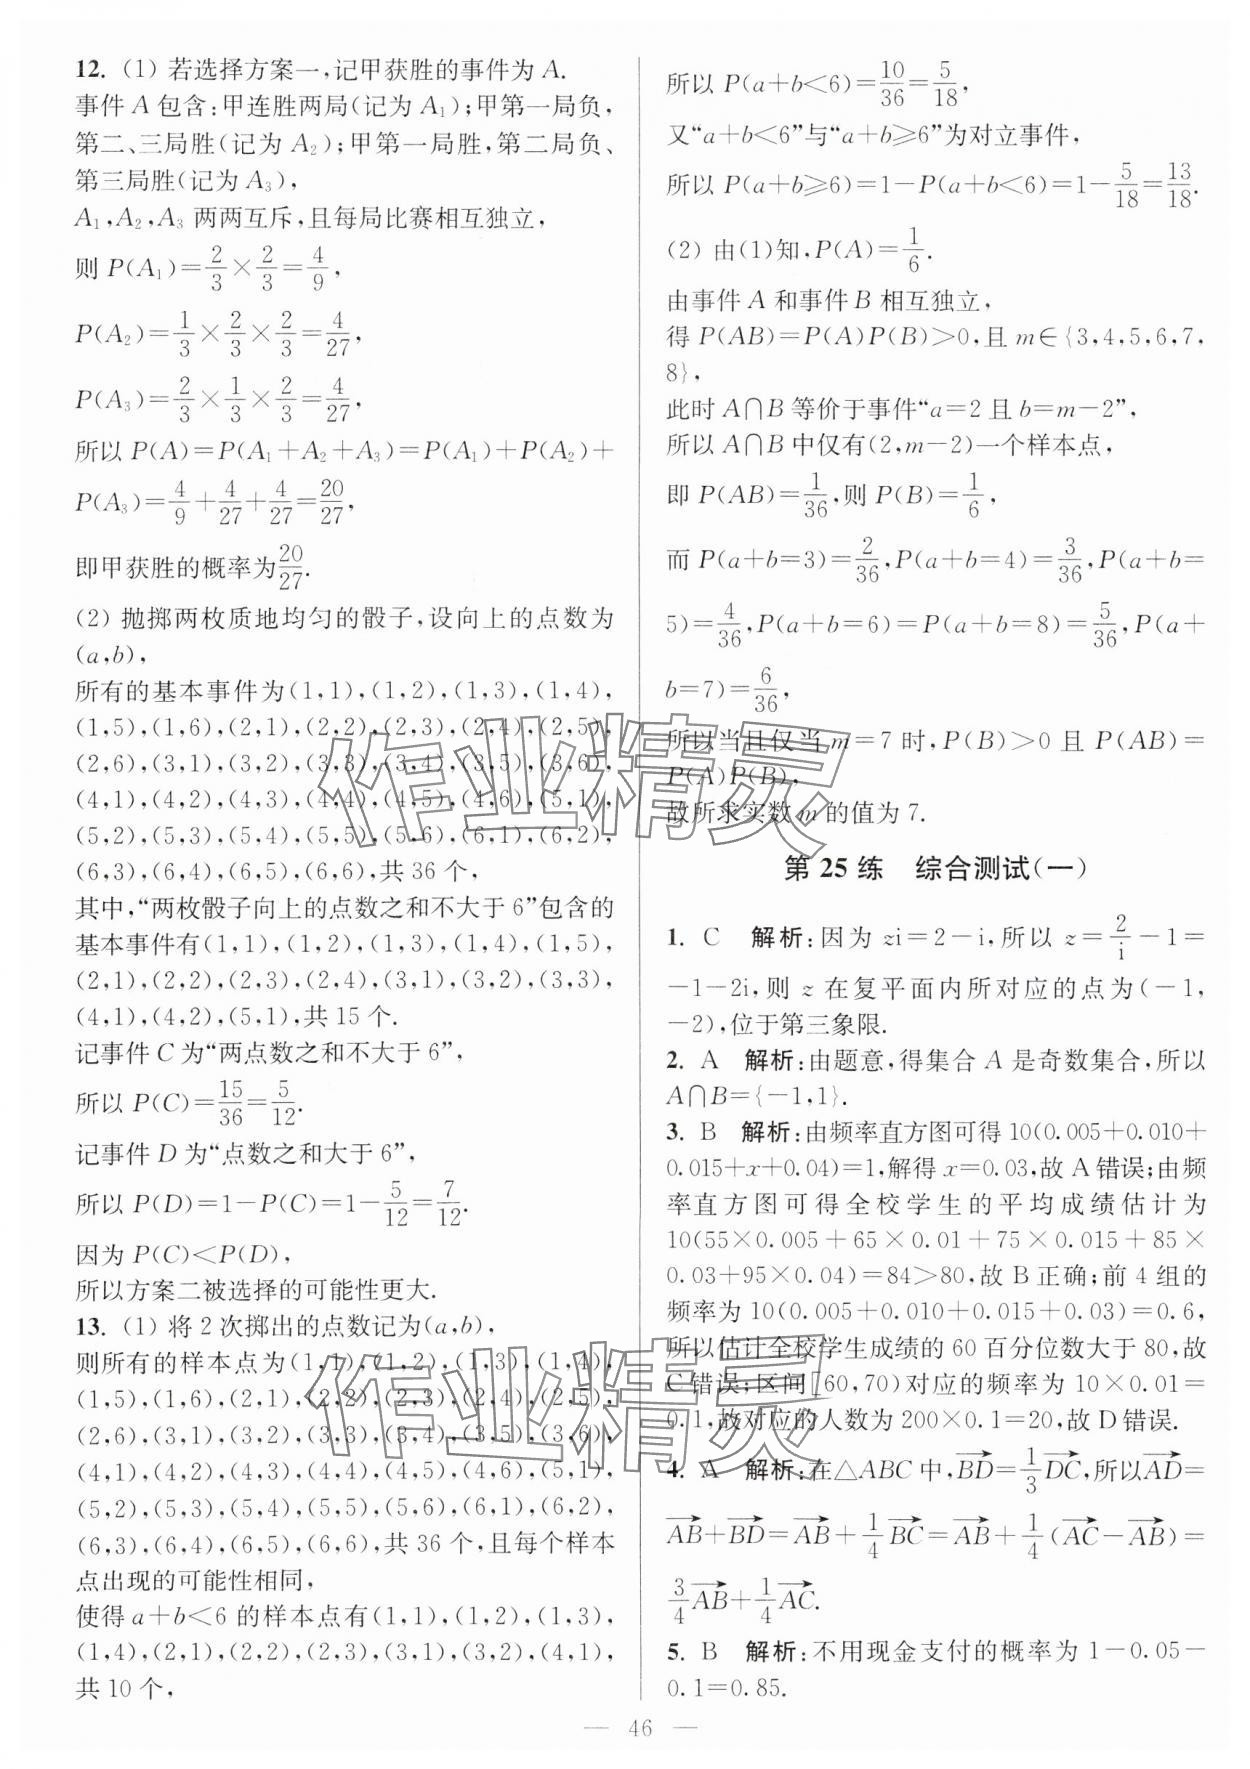 12. (1) 若选择方案一,记甲获胜的事件为 A.
事件 A 包含:甲连胜两局(记为 A₁);甲第一局负,
第二、三局胜(记为 A₂);甲第一局胜,第二局负、
第三局胜(记为 A₃),
A₁,A₂,A₃ 两两互斥,且每局比赛相互独立,
则 P(A₁)=2/3×2/3=4/9,
P(A₂)=1/3×2/3×2/3=4/27,
P(A₃)=2/3×1/3×2/3=4/27,
所以 P(A)=P(A₁+A₂+A₃)=P(A₁)+P(A₂)+
P(A₃)=4/9+4/27+4/27=20/27,
即甲获胜的概率为20/27.
(2) 抛掷两枚质地均匀的骰子,设向上的点数为
(a,b),
所有的基本事件为(1,1),(1,2),(1,3),(1,4),
(1,5),(1,6),(2,1),(2,2),(2,3),(2,4),(2,5),
(2,6),(3,1),(3,2),(3,3),(3,4),(3,5),(3,6),
(4,1),(4,2),(4,3),(4,4),(4,5),(4,6),(5,1),
(5,2),(5,3),(5,4),(5,5),(5,6),(6,1),(6,2),
(6,3),(6,4),(6,5),(6,6),共 36 个.
其中,“两枚骰子向上的点数之和不大于 6”包含的
基本事件有(1,1),(1,2),(1,3),(1,4),(1,5),
(2,1),(2,2),(2,3),(2,4),(3,1),(3,2),(3,3),
(4,1),(4,2),(5,1),共 15 个.
记事件 C 为“两点数之和不大于 6”,
所以 P(C)=15/36=5/12.
记事件 D 为“点数之和大于 6”,
所以 P(D)=1-P(C)=1-5/12=7/12.
因为 P(C)<P(D),
所以方案二被选择的可能性更大.
13. (1) 将 2 次掷出的点数记为(a,b),
则所有的样本点为(1,1),(1,2),(1,3),(1,4),
(1,5),(1,6),(2,1),(2,2),(2,3),(2,4),(2,5),
(2,6),(3,1),(3,2),(3,3),(3,4),(3,5),(3,6),
(4,1),(4,2),(4,3),(4,4),(4,5),(4,6),(5,1),
(5,2),(5,3),(5,4),(5,5),(5,6),(6,1),(6,2),
(6,3),(6,4),(6,5),(6,6),共 36 个,且每个样本
点出现的可能性相同,
使得 a+b<6 的样本点有(1,1),(1,2),(1,3),
(1,4),(2,1),(2,2),(2,3),(3,1),(3,2),(4,1),
共 10 个,
所以 P(a+b<6)=10/36=5/18,
又“a+b<6”与“a+b≥6”为对立事件,
所以 P(a+b≥6)=1-P(a+b<6)=1-5/18=13/18.
(2) 由(1)知,P(A)=1/6.
由事件 A 和事件 B 相互独立,
得 P(AB)=P(A)P(B)>0,且 m∈{3,4,5,6,7,
8},
此时 A∩B 等价于事件“a=2 且 b=m-2”,
所以 A∩B 中仅有(2,m-2)一个样本点,
即 P(AB)=1/36,则 P(B)=1/6,
而 P(a+b=3)=2/36,P(a+b=4)=3/36,P(a+b=
5)=4/36,P(a+b=6)=P(a+b=8)=5/36,P(a+
b=7)=6/36,
所以当且仅当 m=7 时,P(B)>0 且 P(AB)=
P(A)P(B),
故所求实数 m 的值为 7.
第 25 练 综合测试(一)
1. C 解析:因为 zi=2-i,所以 z=2/i-1=
-1-2i,则 z 在复平面内所对应的点为(-1,
-2),位于第三象限.
2. A 解析:由题意,得集合 A 是奇数集合,所以
A∩B={-1,1}.
3. B 解析:由频率直方图可得 10(0.005+0.010+
0.015+x+0.04)=1,解得 x=0.03,故 A 错误;由频
率直方图可得全校学生的平均成绩估计为
10(55×0.005+65×0.01+75×0.015+85×
0.03+95×0.04)=84>80,故 B 正确;前 4 组的
频率为 10(0.005+0.010+0.015+0.03)=0.6,
所以估计全校学生成绩的 60 百分位数大于 80,故
C 错误;区间[60,70)对应的频率为 10×0.01=
0.1,故对应的人数为 200×0.1=20,故 D 错误.
4. A 解析:在△ABC 中,BD→=1/3DC→,所以AD→=
AB→+BD→=AB→+1/4BC→=AB→+1/4(AC→-AB→)=
3/4AB→+1/4AC→.
5. B 解析:不用现金支付的概率为 1-0.05-
0.1=0.85.
— 46 —
作业精灵
作业精灵